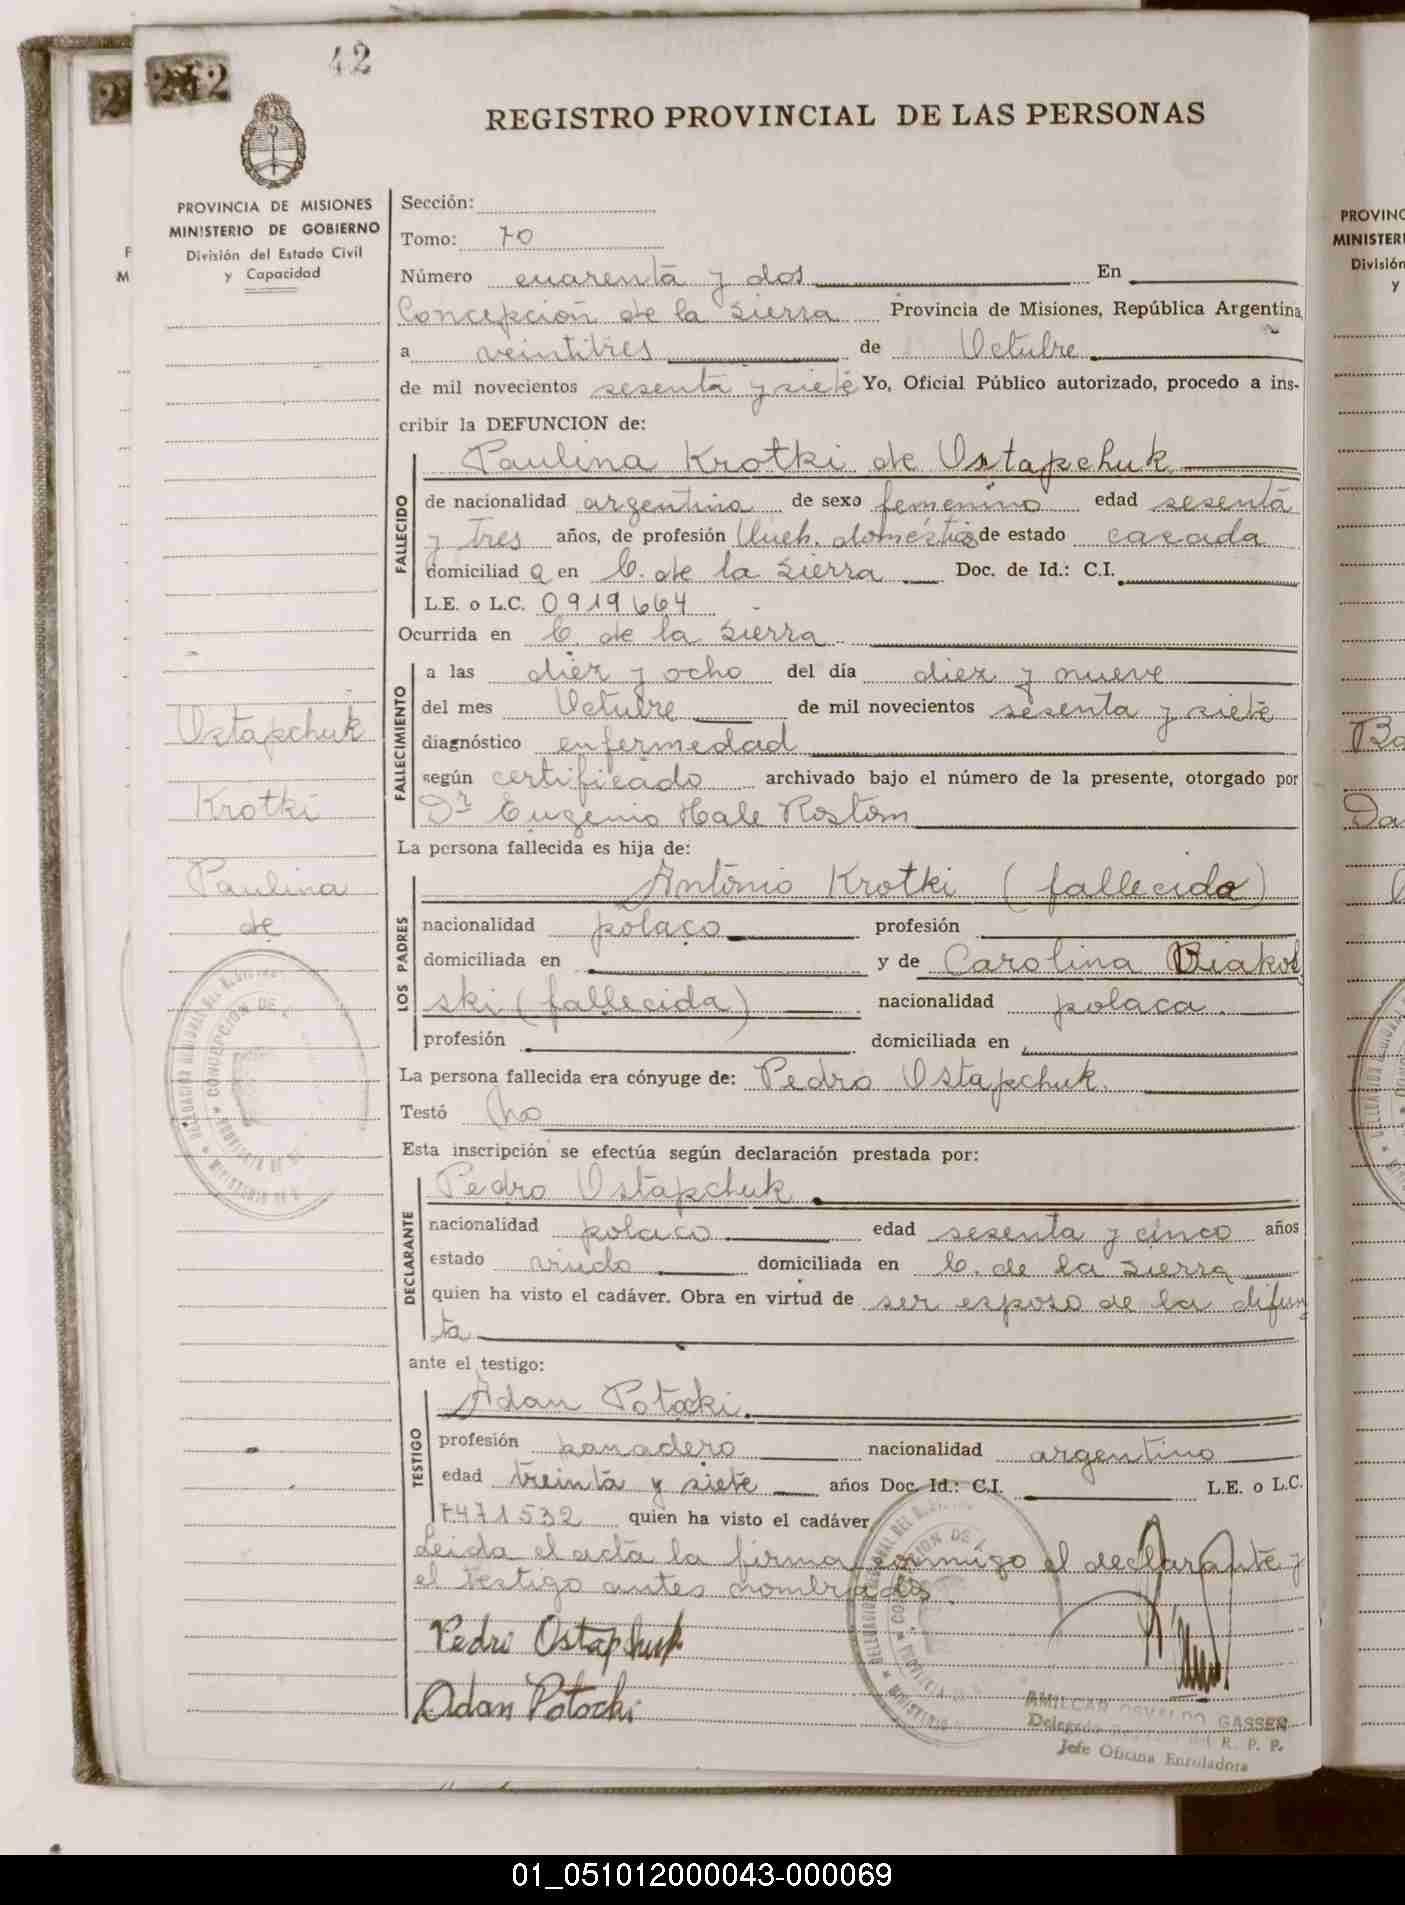 42
242
REGISTRO PROVINCIAL DE LAS PERSONAS
PROVINCIA DE MISIONES
MINISTERIO DE GOBIERNO
División del Estado Civil
y Capacidad
Ostapchuk
Krotki
Paulina
de
Sección:
Tomo: 70
Número cuarenta y dos En
Concepción de la Sierra Provincia de Misiones, República Argentina,
a veintitres de Octubre
de mil novecientos sesenta y siete Yo, Oficial Público autorizado, procedo a ins-
cribir la DEFUNCION de:
FALLECIDO
Paulina Krotki de Ostapchuk
de nacionalidad argentina de sexo femenino edad sesenta
y tres años, de profesión domésticos de estado casada
domiciliad a en C. de la Sierra Doc. de Id.: C.I.
L.E. o L.C. 0919664
Ocurrida en C. de la Sierra
FALLECIMIENTO
a las diez y ocho del día diez y nueve
del mes Octubre de mil novecientos sesenta y siete
diagnóstico enfermedad
según certificado archivado bajo el número de la presente, otorgado por
Dr Eugenio Hale Rostom
La persona fallecida es hija de:
LOS PADRES
Antonio Krotki (fallecido)
nacionalidad polaco profesión
domiciliada en y de Carolina Biakol
ski (fallecida) nacionalidad polaca.
profesión domiciliada en
La persona fallecida era cónyuge de: Pedro Ostapchuk.
Testó No
Esta inscripción se efectúa según declaración prestada por:
DECLARANTE
Pedro Ostapchuk
nacionalidad polaco edad sesenta y cinco años
estado viudo domiciliada en C. de la Sierra
quien ha visto el cadáver. Obra en virtud de ser esposo de la difun
ta
ante el testigo:
TESTIGO
Adan Potocki.
profesión panadero nacionalidad argentino
edad treinta y siete años Doc. Id.: C.I. L.E. o L.C.
7471532 quien ha visto el cadáver
Leida el acta la firma conmigo el declarante y
el testigo antes nombrados.
Pedro Ostapchuk
Adan Potocki
AMILCAR OSVALDO GASSER
Delegado R. P. P.
Jefe Oficina Enroladora
PROVINC
MINISTERI
División
y
Ba
Da
01_051012000043-000069